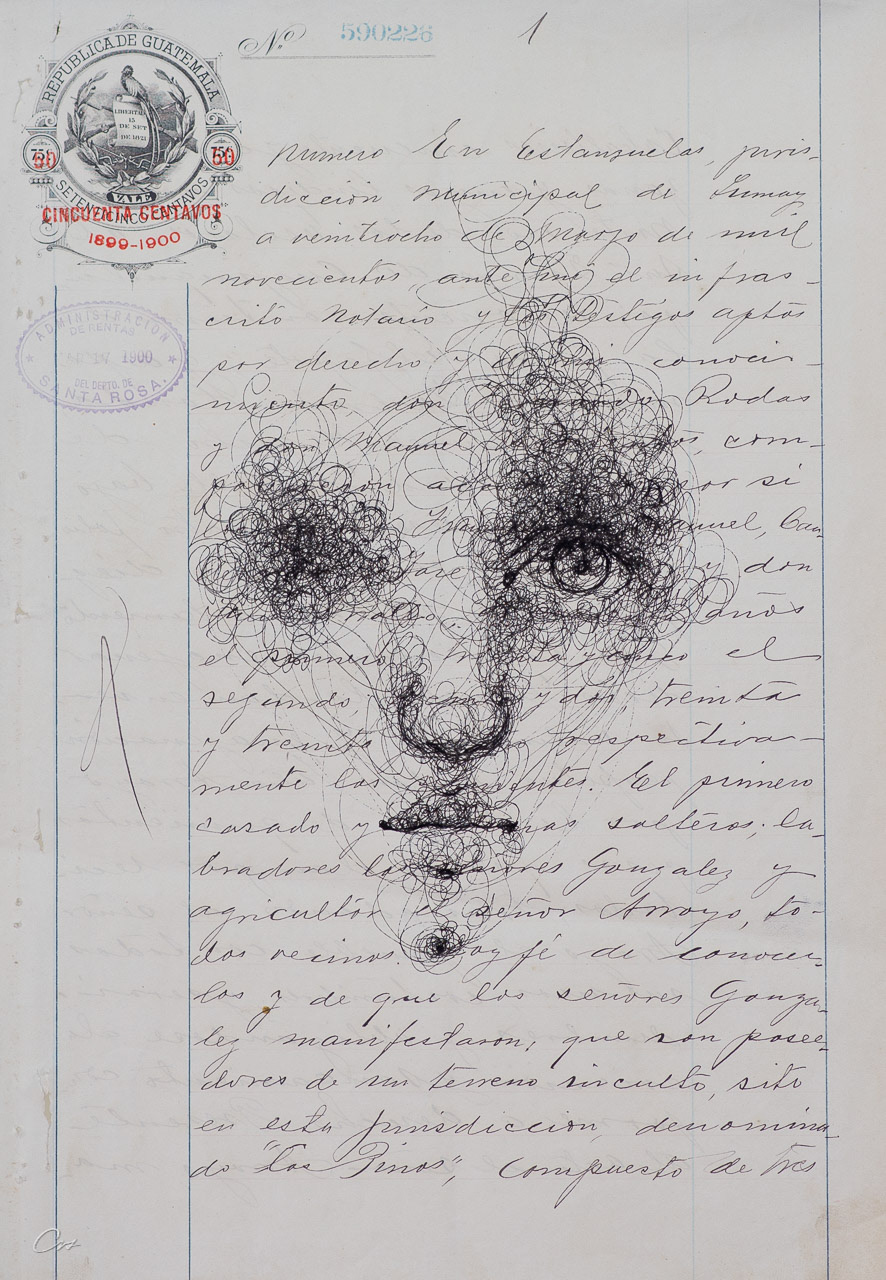 Nº 590226
1
REPUBLICA DE GUATEMALA
LIBERTAD
15
DE SET
DE 1821
50 50
VALE
SETENTA Y CINCO CENTAVOS
CINCUENTA CENTAVOS
1899-1900
ADMINISTRACION
DE RENTAS
1900
DEL DEPTO. DE
SANTA ROSA.
Numero En Estanzuelas, juris-
diccion municipal de
a veintiocho de Marzo de mil
novecientos, ante mi el infras-
crito Notario y los testigos aptos
por derecho y de mi conoci-
miento, don Rodas
y don Manuel com-
por si
Manuel,
y don
años
el primero, treinta y cinco el
segundo, y dos, treinta
y treinta respectiva-
mente los El primero
casado y solteros; la-
bradores los señores Gonzalez y
agricultor el señor Arroyo, to-
dos vecinos. Doy fé de conocer-
los y de que los señores Gonza-
lez manifestaron, que son posee-
dores de un terreno inculto, sito
en esta jurisdiccion, denomina-
do "Los Pinos", compuesto de tres